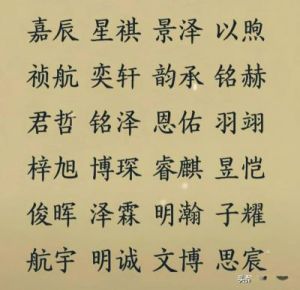 嘉辰 星祺 景泽 以煦
祯航 奕轩 韵承 铭赫
君哲 铭泽 恩佑 羽翊
梓旭 博琛 睿麒 昱恺
俊晖 泽霖 明瀚 子耀
航宇 明诚 文博 思宸